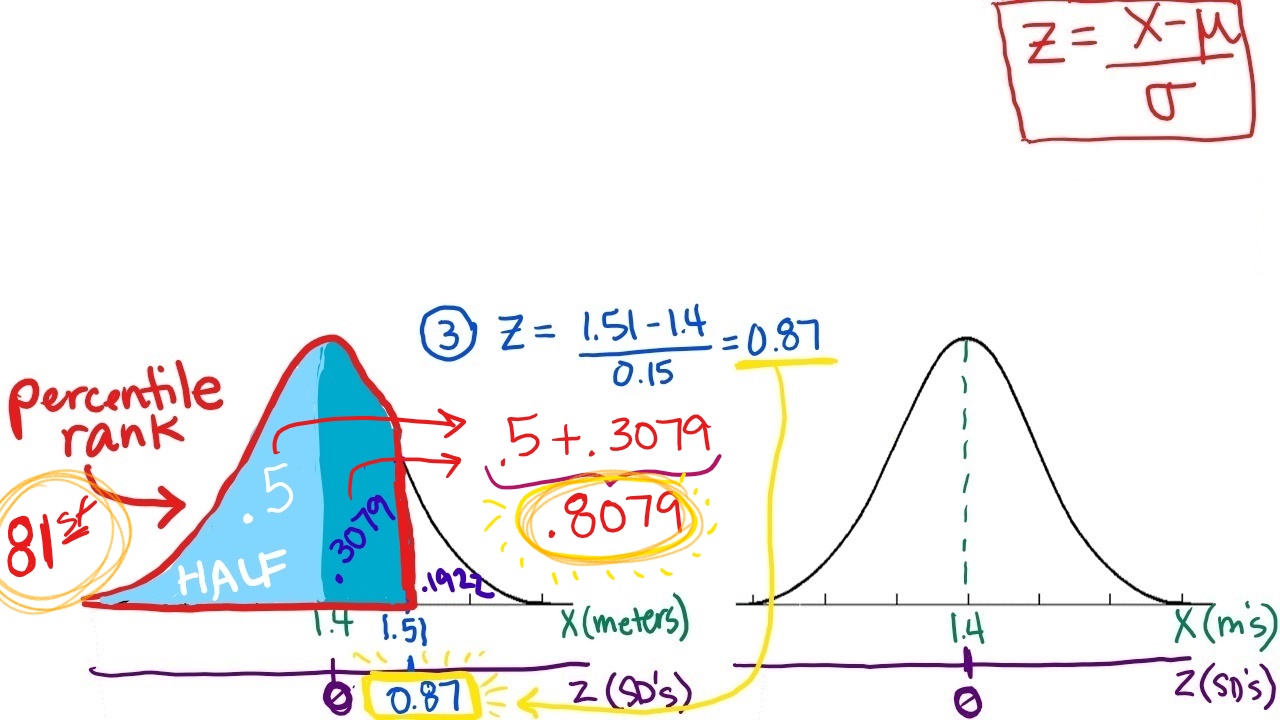 Z = X-μ
σ
③ Z = 1.51-1.4 = 0.87
0.15
percentile
rank
81st
.5
HALF
.3079
.1922
.5+.3079
.8079
1.4
1.51
X(meters)
0
0.87
Z(SD's)
1.4
X(m's)
0
Z(SD's)